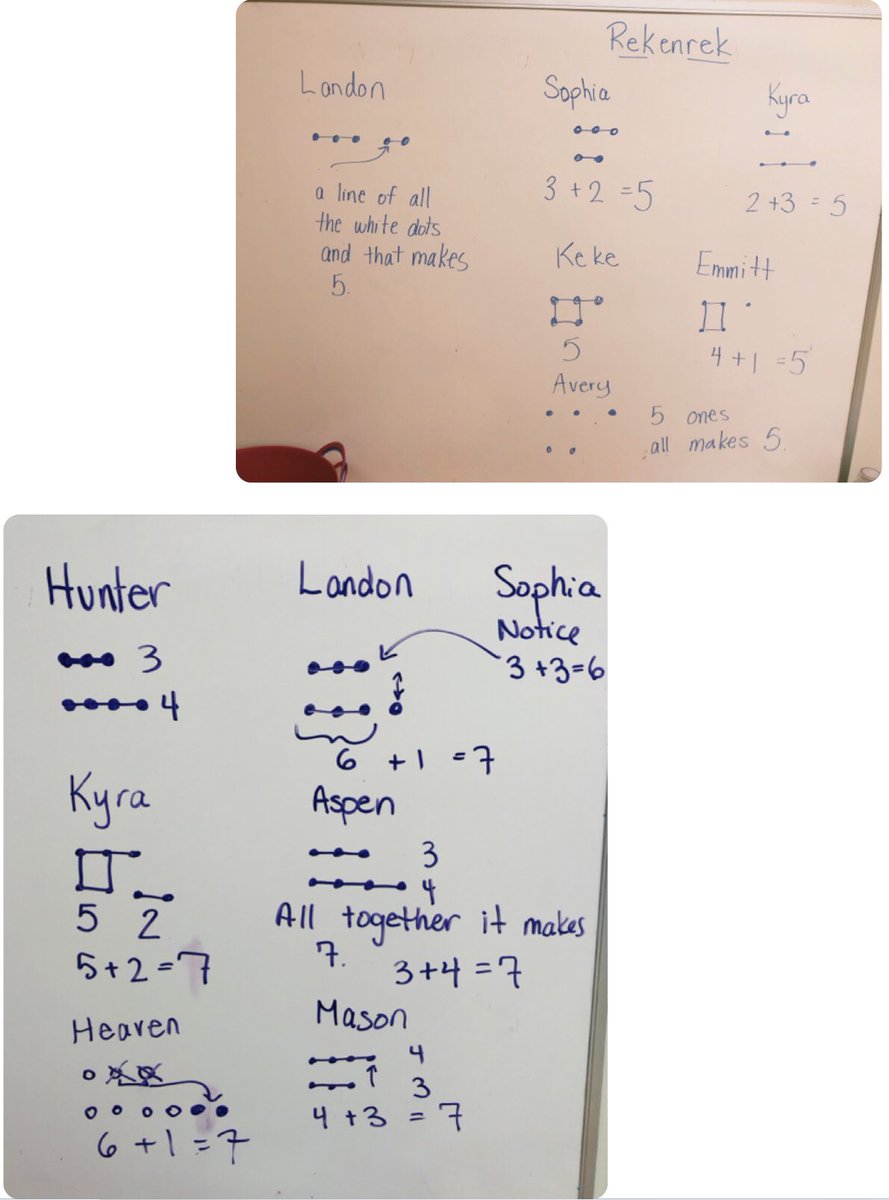 Rekenrek
Landon
a line of all
the white dots
and that makes
5.
Sophia
3 + 2 = 5
Kyra
2 + 3 = 5
Keke
5
Emmitt
4 + 1 = 5
Avery
5 ones
all makes 5.
Hunter
3
4
Landon
6 + 1 = 7
Sophia
Notice
3 + 3 = 6
Kyra
5 2
5 + 2 = 7
Aspen
3
4
All together it makes
7. 3 + 4 = 7
Heaven
6 + 1 = 7
Mason
4
3
4 + 3 = 7